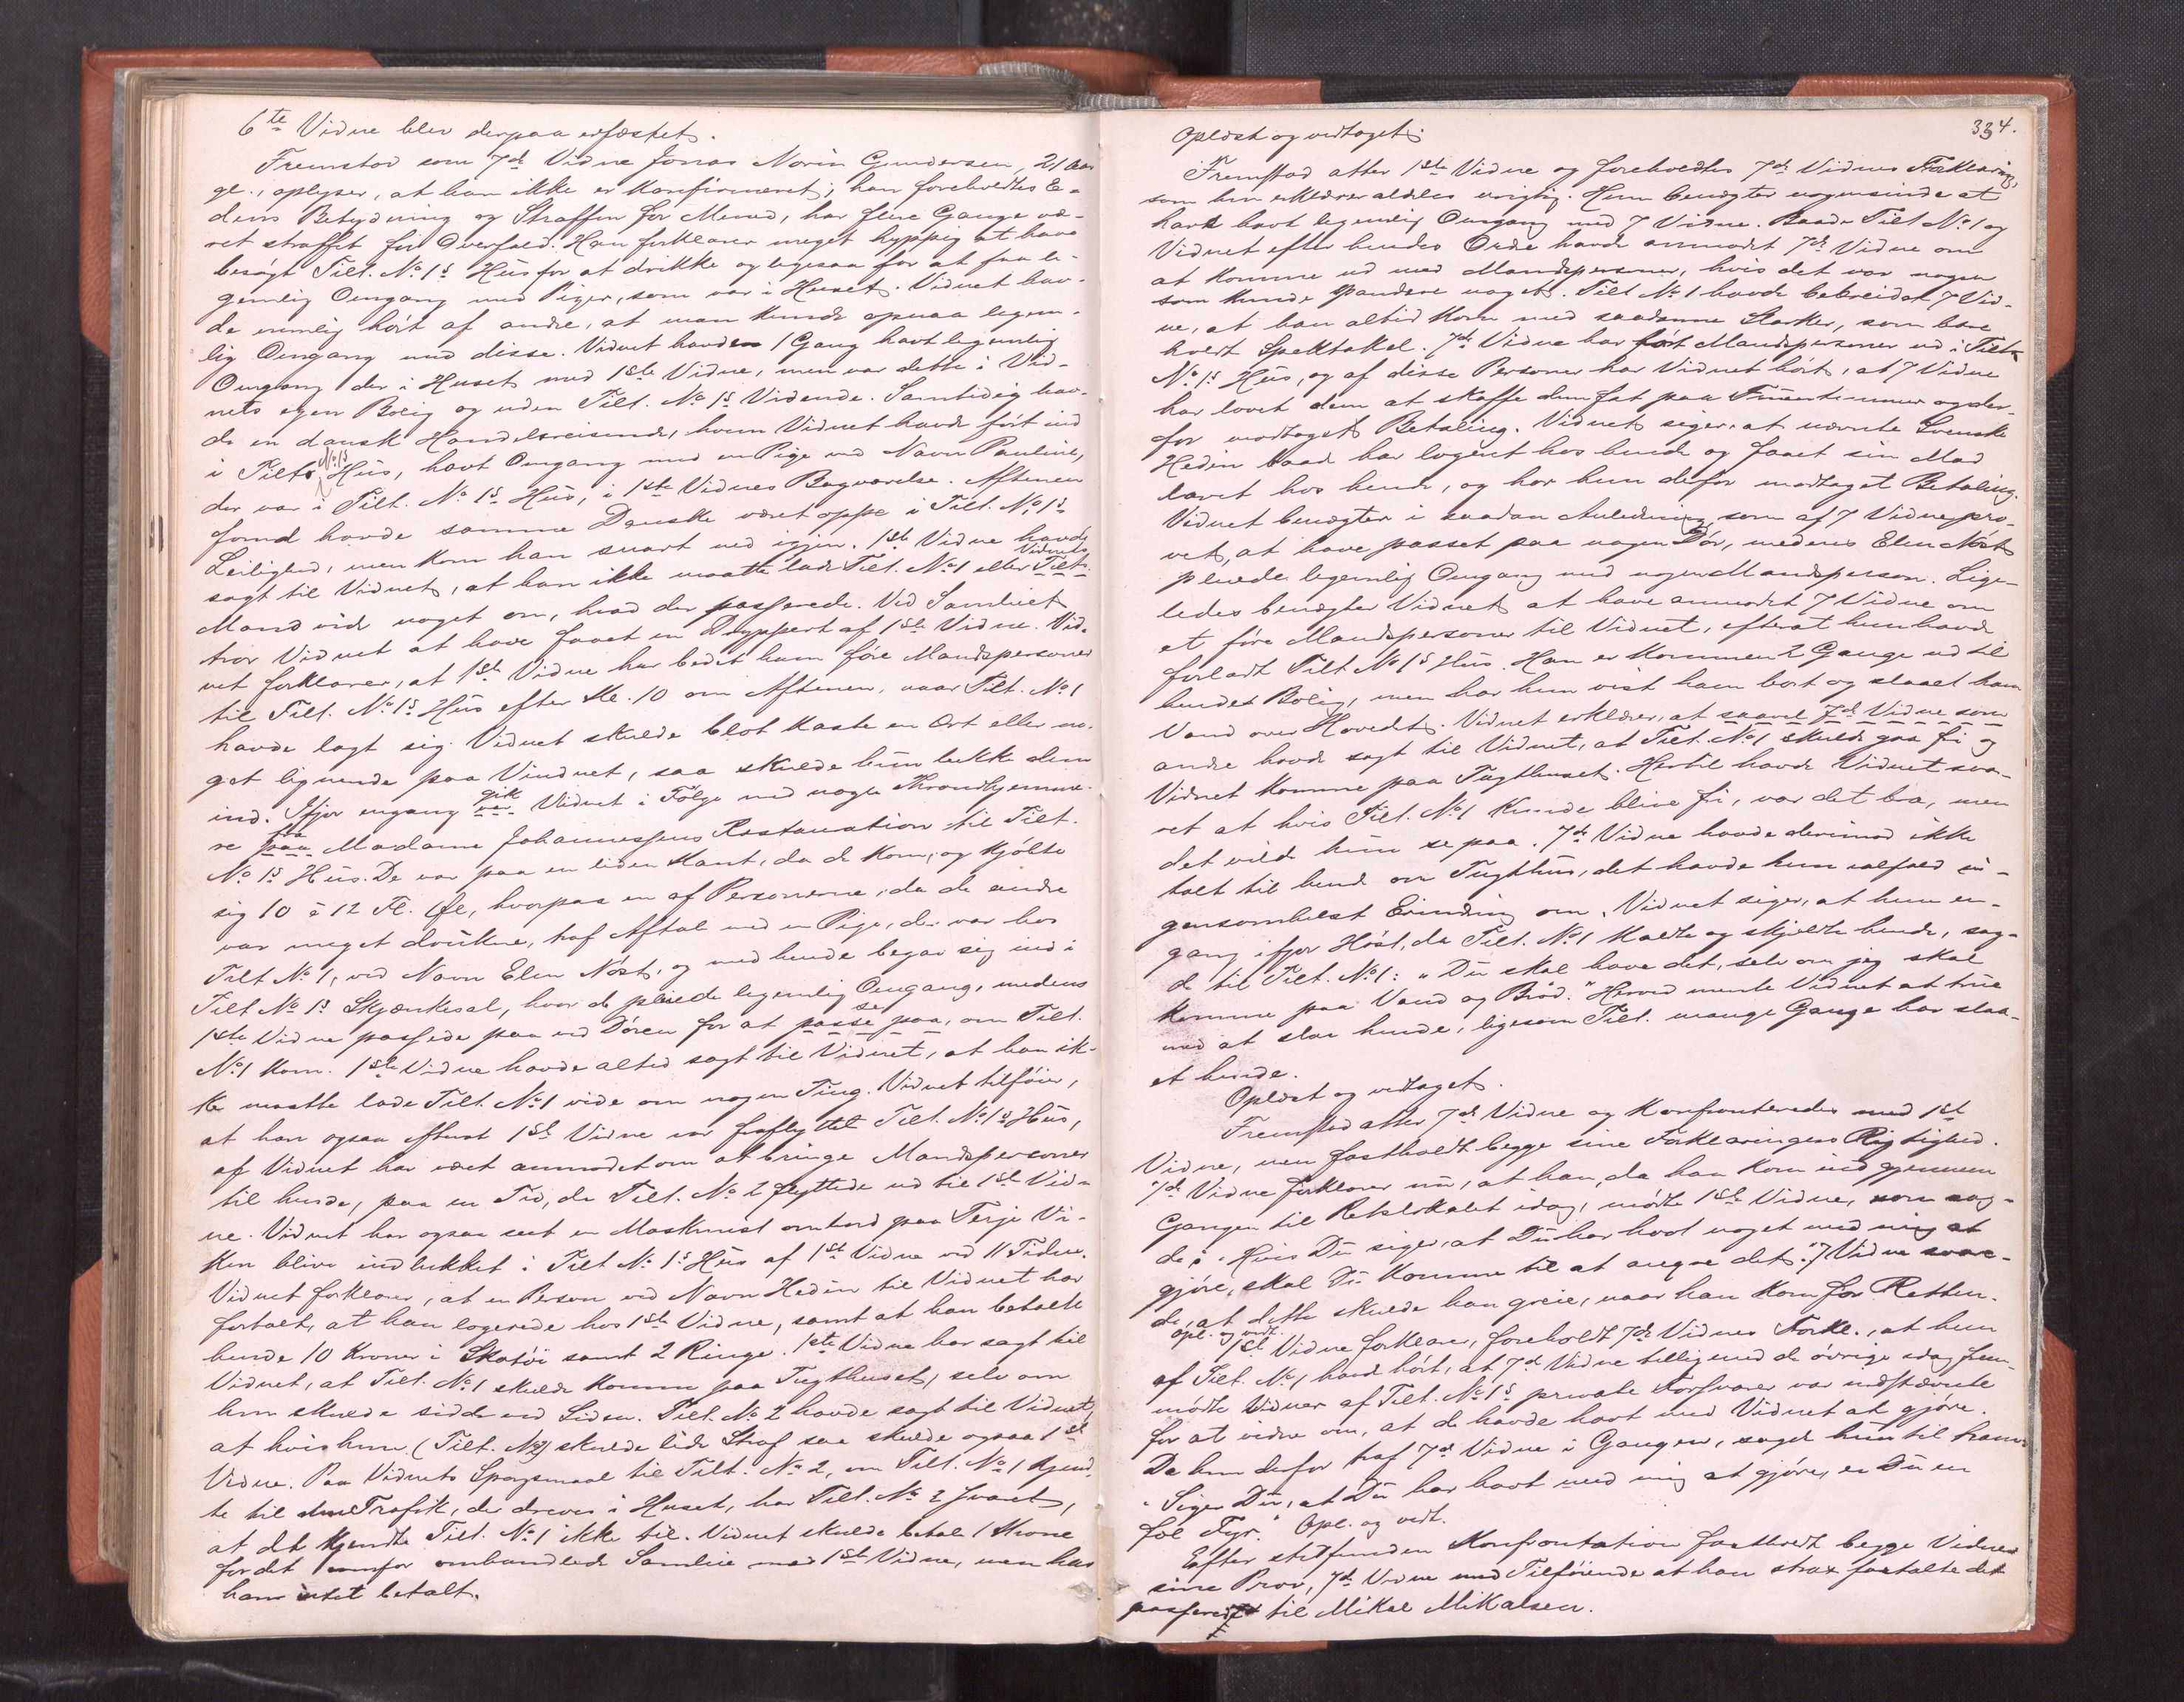 6te Vidne blev derpaa edfæstet.
Fremstod som 7de Vidne Jonas Norin Gundersen, 21 Aar
gl., oplyser, at han ikke er konfirmeret; han foreholdtes E-
dens Betydning og Straffen for Mened, har flere Gange væ-
ret straffet for Overfald. Han forklarer meget hyppig at have
besøgt Tilt. No 1s Hus for at drikke og ligesaa for at faa le-
gemlig Omgang med Piger, som var i Huset. Vidnet hav-
de nemlig hørt af andre, at man kunde opnaa legem-
lig Omgang med disse. Vidnet havde 1 Gang havt legemlig
Omgang der i Huset med 1ste Vidne, men var dette i Vid-
nets egen Bolig og uden Tilt. No 1s Vidende. Samtidig hav-
de en dansk Handelsreisende, hvem Vidnet havde ført ind
i Tilts No 1s Hus, havt Omgang med en Pige ved Navn Pauline,
der var i Tilt. No 1s Hus, i 1ste Vidnes Bagværelse. Aftenen
forud havde samme Danske været oppe i Tilt. No 1s
Leilighed, men kom han snart ned igjen. 1ste Vidne havde
sagt til Vidnet, at han ikke maatte lade Tilt. No 1 eller Vidnets Tilts.
Mand vide noget om, hvad der passerede. Ved Samleiet
tror Vidnet at have faaet en Dryppert af 1ste Vidne. Vid-
net forklarer, at 1ste Vidne har bedet ham føre Mandspersoner
til Tilt. No 1s Hus efter Kl. 10 om Aftenen, naar Tilt. No 1
havde lagt sig. Vidnet skulde blot kaste en Ort eller no-
get lignende paa Vinduet, saa skulde hun lukke dem
ind. Ifjor engang gik var Vidnet i Følge med nogle Throndhjemme-
re fra paa Madame Johannessens Restauration til Tilt.
No 1s Hus. De var paa en liden Kant, da de kom, og kjøbte
sig 10 à 12 Fl. Øl, hvorpaa en af Personerne, da de andre
var meget drukne, traf Aftal med en Pige, der var hos
Tilt No 1, ved Navn Elen Nøst, og med hende begav sig ind i
Tilt No 1s Skjænkesal, hvor de pleiede legemlig Omgang, medens
1ste Vidne passede paa ved Døren for at se passe paa, om Tilt.
No 1 kom. 1ste Vidne havde altid sagt til Vidnet, at han ik-
ke maatte lade Tilt. No 1 vide om nogen Ting. Vidnet tilføier,
at han ogsaa efterat 1ste Vidne var fraflyttet Tilt. No 1s Hus,
af Vidnet har været anmodet om at bringe Mandspersoner
til hende, paa en Tid, da Tilt. No 2 flyttede ud til 1ste Vid-
ne. Vidnet har ogsaa seet en Maskinist ombord paa Terje Vi-
ken blive indlukket i Tilt No 1s Hus af 1ste Vidne ved 11 Tiden.
Vidnet forklarer, at en Person ved Navn Hedin til Vidnet har
fortalt, at han logerede hos 1ste Vidne, samt at han betalte
hende 10 Kroner i Skotøi samt 2 Ringe. 1ste Vidne har sagt til
Vidnet, at Tilt. No 1 skulde komme paa Tugthuset, selv om
hun skulde sidde ved Siden. Tilt. No 2 havde sagt til Vidnet,
at hvis hun (Tilt. No 2) skulde lide Straf saa skulde ogsaa 1ste
Vidne. Paa Vidnets Spørgsmaal til Tilt. No 2, om Tilt. No 1 kjend-
te til den Trafik, der dreves i Huset, har Tilt. No 2 svaret,
at det kjendte Tilt. No 1 ikke til. Vidnet skulde betale 1 Krone
for det ovenfor omhandlede Samleie med 1ste Vidne, men har
han intet betalt.
334.
Oplæst og vedtaget.
Fremstod atter 1ste Vidne og foreholdtes 7de Vidnes Forklaring,
som hun erklærer aldeles urigtig. Hun benægter nogensinde at
have havt legemlig Omgang med 7 Vidne. Baade Tilt No 1 og
Vidnet efter hendes Ordre havde anmodet 7de Vidne om
at komme ud med Mandspersoner, hvis det var nogen
som kunde spandere noget. Tilt No 1 havde bebreidet 7 Vid-
ne, at han altid kom med saadanne Starker, som bare
hvert Spektakel. 7de Vidne har ført Mandspersoner ud i Tilts
No 1s Hus, og af disse Personer har Vidnet hørt, at 7 Vidne
har lovet dem at skaffe dem fat paa Fruentimmer og der-
for modtaget Betaling. Vidnet siger, at nævnte Svenske
Hedin baade har logeret hos hende og faaet sin Mad
lavet hos hende, og har hun derfor modtaget Betaling.
Vidnet benægter i saadan Anledning som af 7 Vidne prø-
vet, at have passet paa nogen Dør, medens Elen Nøst
pleiede legemlig Omgang med nogen Mandsperson. Lige-
ledes benægter Vidnet at have anmodet 7 Vidne om
at føre Mandspersoner til Vidnet, efterat hun havde
forladt Tilt No 1s Hus. Han er kommen 2 Gange ud til
hendes Bolig, men har hun vist ham bort og slaaet ham
Vand over Hovedet. Vidnet erklærer, at saavel 7de Vidne som
andre havde sagt til Vidnet, at Tilt. No 1 skulde gaa fri og
Vidnet komme paa Tugthuset. Hertil havde Vidnet sva-
ret at hvis Tilt. No 1 kunde blive fri, var det bra, men
det vilde hun se paa. 7de Vidne havde derimod ikke
talt til hende om Tugthus, det havde hun ialfald in-
gensomhelst Erindring om. Vidnet siger, at hun en-
gang ifjor Høst, da Tilt. No 1 kaldte og skjældte hende, sag-
de til Tilt. No 1: "Du skal have det, selv om jeg skal
komme paa Vand og Brød." Herved mente Vidnet at true
med at slaa hende, ligesom Tilt. mange Gange har slaa-
et hende.
Oplæst og vedtaget.
Fremstod atter 7de Vidne og konfronteredes med 1ste
Vidne, men fastholdt begge sine Forklaringers Rigtighed.
7de Vidne forklarer nu, at han, da han kom ind gjennem
Gangen til Retslokalet idag, mødte 1ste Vidne, som sag-
de: "Hvis Du siger, at Du har havt noget med mig at
gjøre, skal Du komme til at angre det." 7 Vidne svare-
de, at dette skulde han greie, naar han kom for Retten.
Opl. og vedt.
1ste Vidne forklarer, foreholdt 7de Vidnes Forkl., at hun
af Tilt. No 1 havde hørt, at 7de Vidne tilligemed de øvrige idag frem-
mødte Vidner af Tilt. No 1s private Forsvarer var indstævnte
for at vidne om, at de havde havt med Vidnet at gjøre.
Da hun derfor traf 7de Vidne i Gangen, sagde hun til ham:
"Siger Du, at Du har havt med mig at gjøre, er Du en
fæl Fyr." Opl. og vedt.
Efter stedfunden Konfrontation fastholdt begge Vidner
sine Prov, 7de Vidne med Tilføiende at han strax fortalte det
passerede til Mikal Mikalsen.